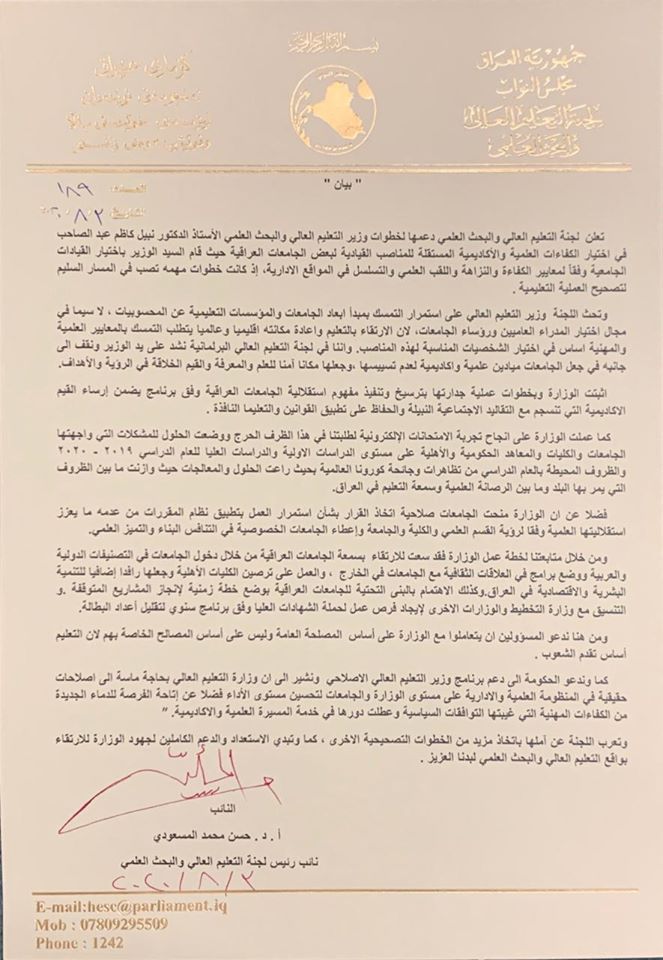 بسم الله الرحمن الرحيم
جمهورية العراق
مجلس النواب
لجنة التعليم العالي
والبحث العلمي
العدد ١٨٩
التاريخ
" بيان "
تعلن لجنة التعليم العالي والبحث العلمي دعمها لخطوات وزير التعليم العالي والبحث العلمي الأستاذ الدكتور نبيل كاظم عبد الصاحب
في اختيار الكفاءات العلمية والأكاديمية المستقلة للمناصب القيادية لبعض الجامعات العراقية حيث قام السيد الوزير باختيار القيادات
الجامعية وفقاً لمعايير الكفاءة والنزاهة واللقب العلمي والتسلسل في المواقع الادارية، إذ كانت خطوات مهمه تصب في المسار السليم
لتصحيح العملية التعليمية .
وتحث اللجنة وزير التعليم العالي على استمرار التمسك بمبدأ ابعاد الجامعات والمؤسسات التعليمية عن المحسوبيات ، لا سيما في
مجال اختيار المدراء العاميين ورؤساء الجامعات، لان الارتقاء بالتعليم واعادة مكانته اقليميا وعالميا يتطلب التمسك بالمعايير العلمية
والمهنية اساس في اختيار الشخصيات المناسبة لهذه المناصب. واننا في لجنة التعليم العالي البرلمانية نشد على يد الوزير ونقف الى
جانبه في جعل الجامعات ميادين علمية واكاديمية لعدم تسييسها ،وجعلها مكانا آمنا للعلم والمعرفة والقيم الخلاقة في الرؤية والأهداف.
اثبتت الوزارة وبخطوات عملية جدارتها بترسيخ وتنفيذ مفهوم استقلالية الجامعات العراقية وفق برنامج يضمن إرساء القيم
الاكاديمية التي تنسجم مع التقاليد الاجتماعية النبيلة والحفاظ على تطبيق القوانين والتعليما النافذة .
كما عملت الوزارة على انجاح تجربة الامتحانات الإلكترونية لطلبتنا في هذا الظرف الحرج ووضعت الحلول للمشكلات التي واجهتها
الجامعات والكليات والمعاهد الحكومية والأهلية على مستوى الدراسات الاولية والدراسات العليا للعام الدراسي ٢٠١٩ - ٢٠٢٠
والظروف المحيطة بالعام الدراسي من تظاهرات وجائحة كورونا العالمية بحيث راعت الحلول والمعالجات حيث وازنت ما بين الظروف
التي يمر بها البلد وما بين الرصانة العلمية وسمعة التعليم في العراق.
فضلا عن ان الوزارة منحت الجامعات صلاحية اتخاذ القرار بشأن استمرار العمل بتطبيق نظام المقررات من عدمه ما يعزز
استقلاليتها العلمية وفقا لرؤية القسم العلمي والكلية والجامعة وإعطاء الجامعات الخصوصية في التنافس البناء والتميز العلمي.
ومن خلال متابعتنا لخطة عمل الوزارة فقد سعت للارتقاء بسمعة الجامعات العراقية من خلال دخول الجامعات في التصنيفات الدولية
والعربية ووضع برامج في العلاقات الثقافية مع الجامعات في الخارج ، والعمل على ترصين الكليات الأهلية وجعلها رافدا إضافيا للتنمية
البشرية والاقتصادية في العراق.وكذلك الاهتمام بالبنى التحتية للجامعات العراقية بوضع خطة زمنية لإنجاز المشاريع المتوقفة .و
التنسيق مع وزارة التخطيط والوزارات الاخرى لإيجاد فرص عمل لحملة الشهادات العليا وفق برنامج سنوي لتقليل أعداد البطالة.
ومن هنا ندعو المسؤولين ان يتعاملوا مع الوزارة على أساس المصلحة العامة وليس على أساس المصالح الخاصة بهم لان التعليم
أساس تقدم الشعوب .
كما وندعو الحكومة الى دعم برنامج وزير التعليم العالي الاصلاحي ونشير الى ان وزارة التعليم العالي بحاجة ماسة الى اصلاحات
حقيقية في المنظومة العلمية والادارية على مستوى الوزارة والجامعات لتحسين مستوى الأداء فضلا عن إتاحة الفرصة للدماء الجديدة
من الكفاءات المهنية التي غيبتها التوافقات السياسية وعطلت دورها في خدمة المسيرة العلمية والاكاديمية. "
وتعرب اللجنة عن أملها باتخاذ مزيد من الخطوات التصحيحية الاخرى ، كما وتبدي الاستعداد والدعم الكاملين لجهود الوزارة للارتقاء
بواقع التعليم العالي والبحث العلمي لبدنا العزيز .
النائب
أ . د . حسن محمد المسعودي
نائب رئيس لجنة التعليم العالي والبحث العلمي
٢٠٢٠/٨/٢
E-mail:hesc@parliament.iq
Mob : 07809295509
Phone : 1242